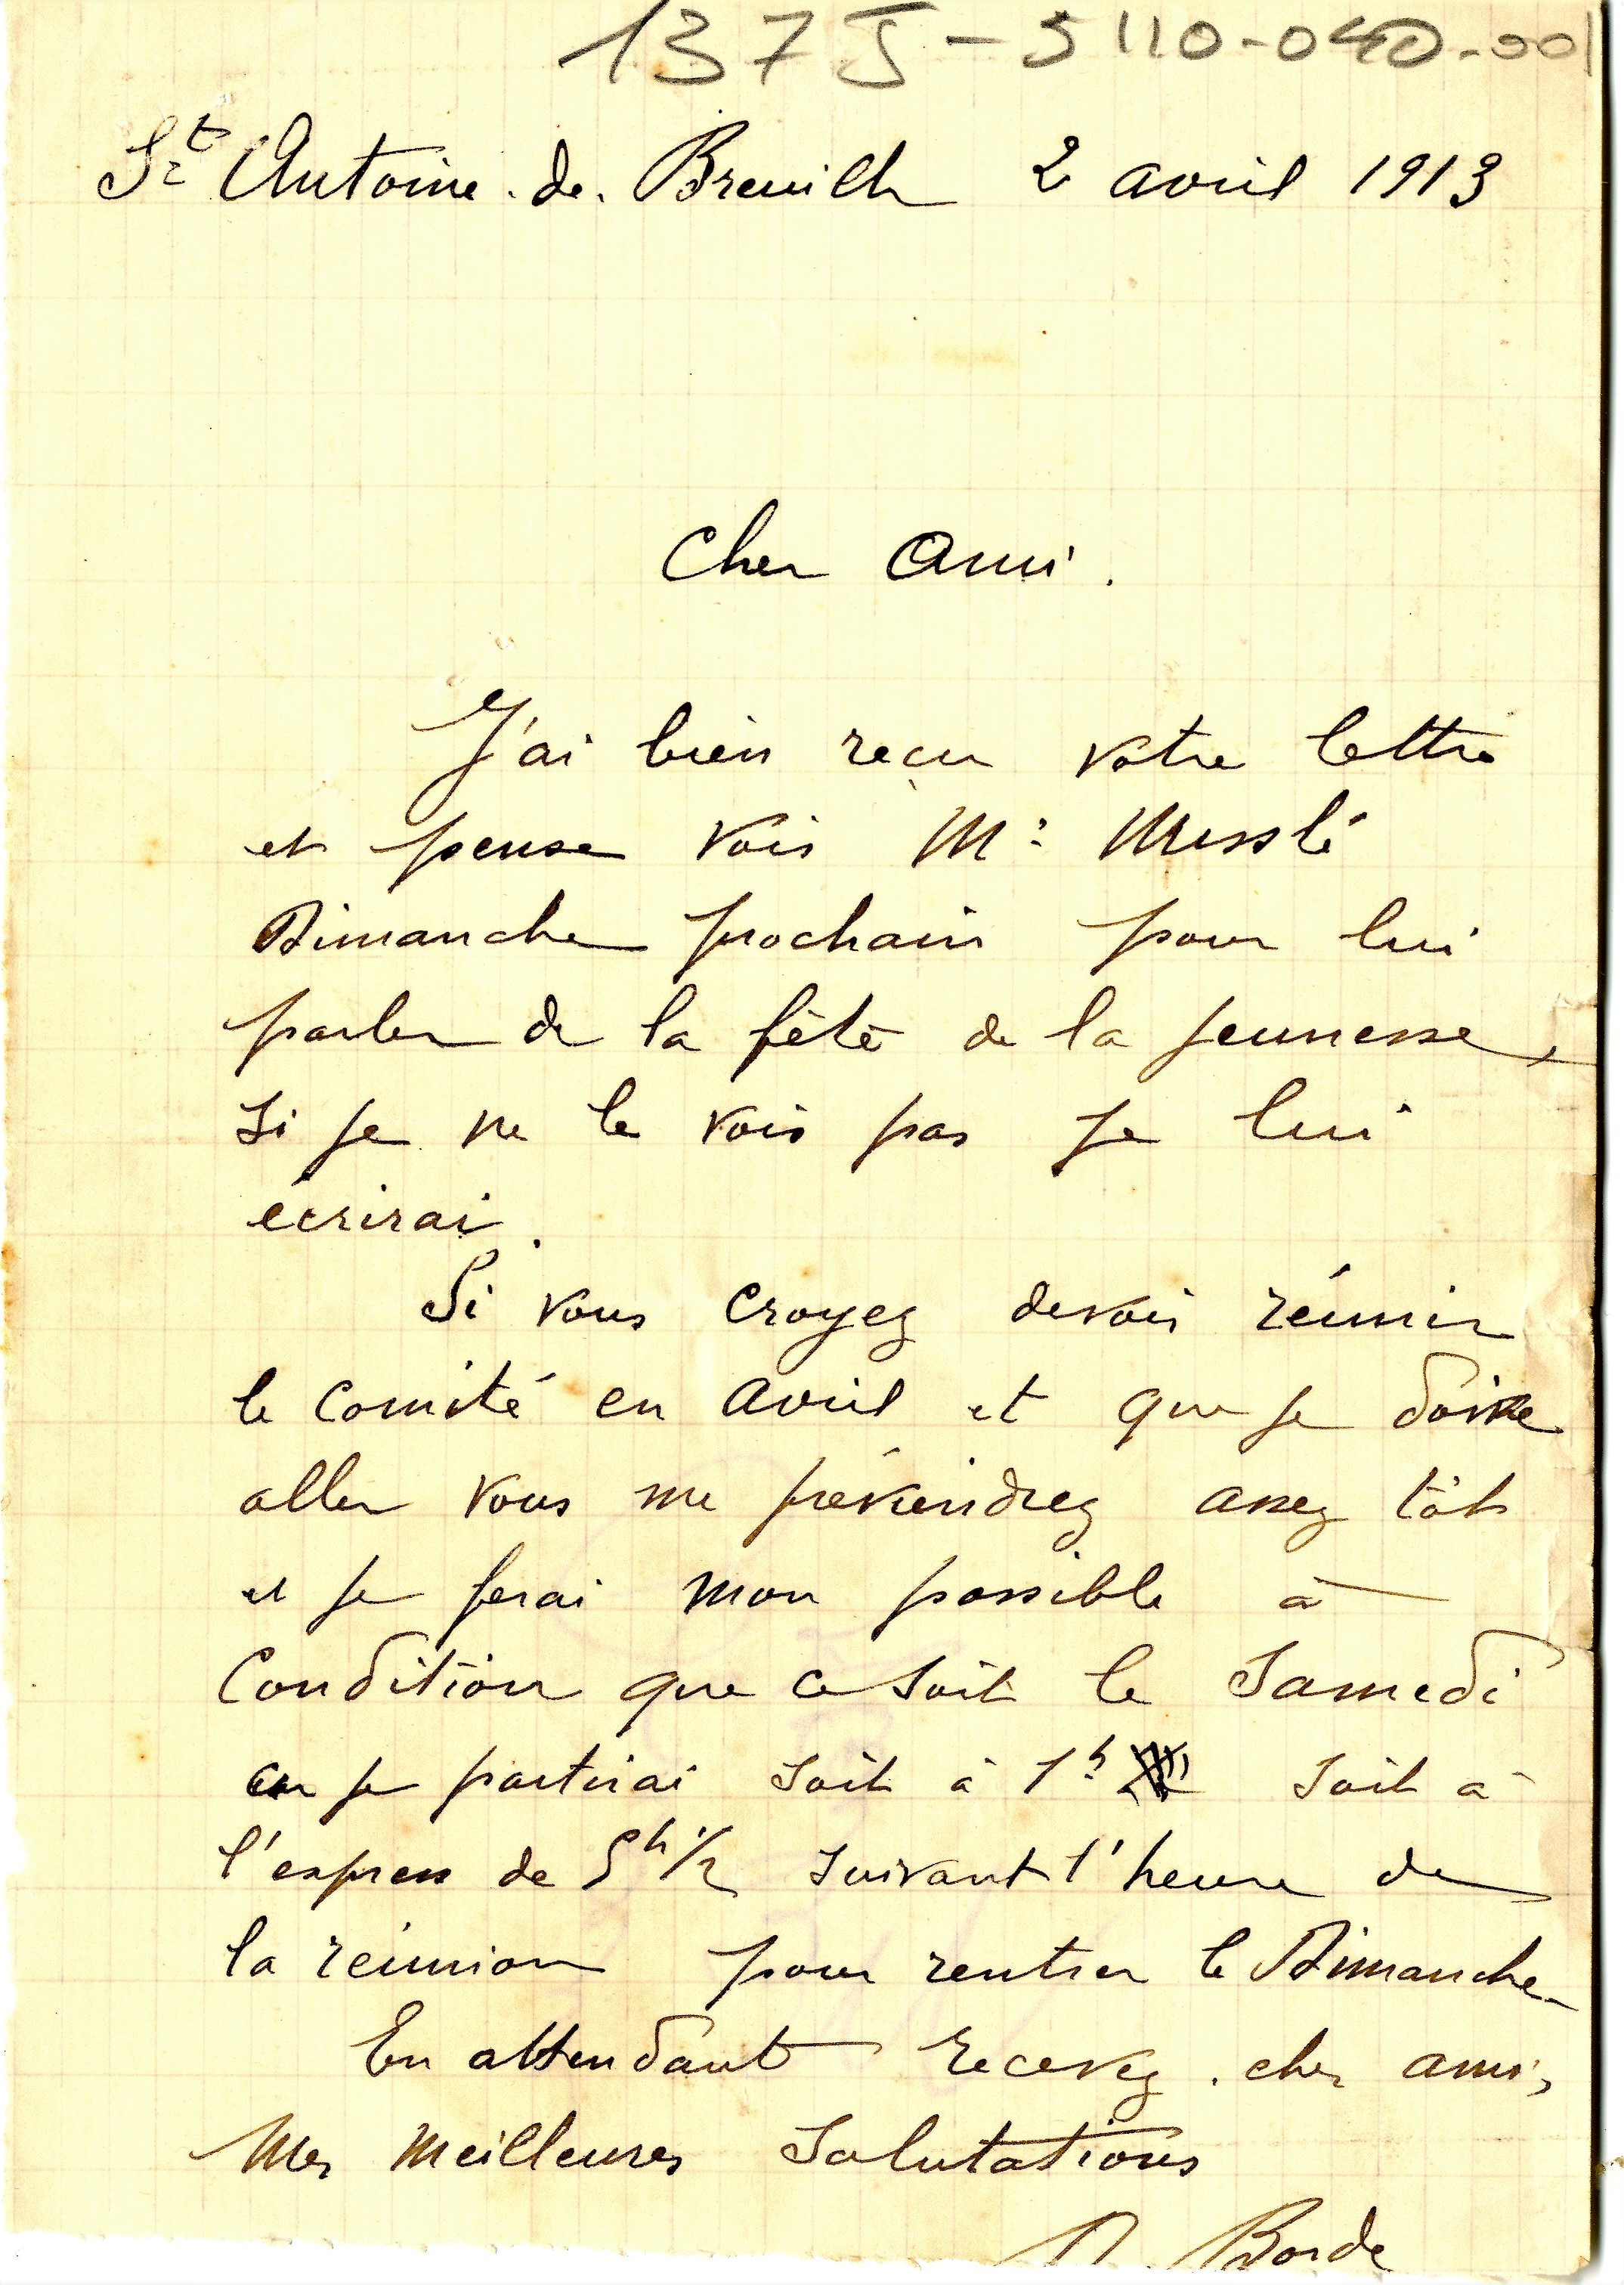 137 J - 5 110 - 040 - 001
St Antoine. de. Breuilh 2 avril 1913
Cher Ami.
J'ai bien reçu votre lettre
et pense voir Mr
Dimanche prochain pour lui
parler de la fête de la Jeunesse,
si je ne le vois pas je lui
écrirai.
Si vous croyez devoir réunir
le Comité en Avril et que je doive
aller vous me préviendrez assez tôt
et je ferai mon possible à
Condition que ce soit le Samedi
car je partirai soit à 1h soit à
l'express de 5h 1/2 suivant l'heure de
la réunion pour rentrer le Dimanche.
En attendant recevez. cher ami,
Mes meilleures Salutations
Borde